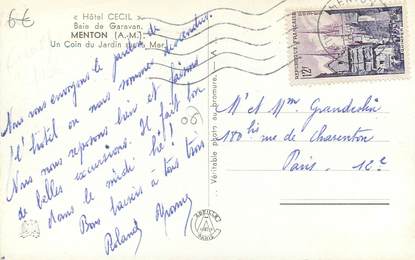 6€
« Hôtel CECIL »
Baie de Garavan
MENTON (A.-M.)
Un Coin du Jardin et la Mer
Nous vous envoyons le jardin de
l'hôtel où nous sommes descendus.
Nous nous reposons bien et faisons
de belles excursions. Il fait bon
dans le midi hé !
Bons baisers à tous trois
Roland Yvonne
Véritable photo au bromure
ABEILLE
PARIS
POSTES
12F
M' et Mme Grandcolin
188 bis rue de Charenton
Paris. 12e